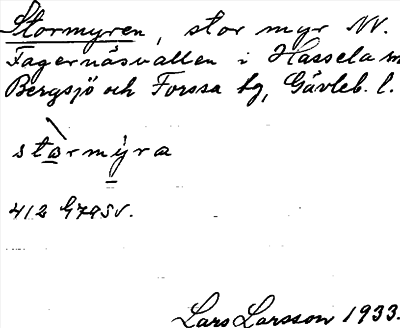 Stormyren, stor myr NV.
Fagernäsvallen i Hassela sn
Bergsjö och Forssa tg, Gävleb. l.
stormyra
412 G7a SV.
Lars Larsson 1933.